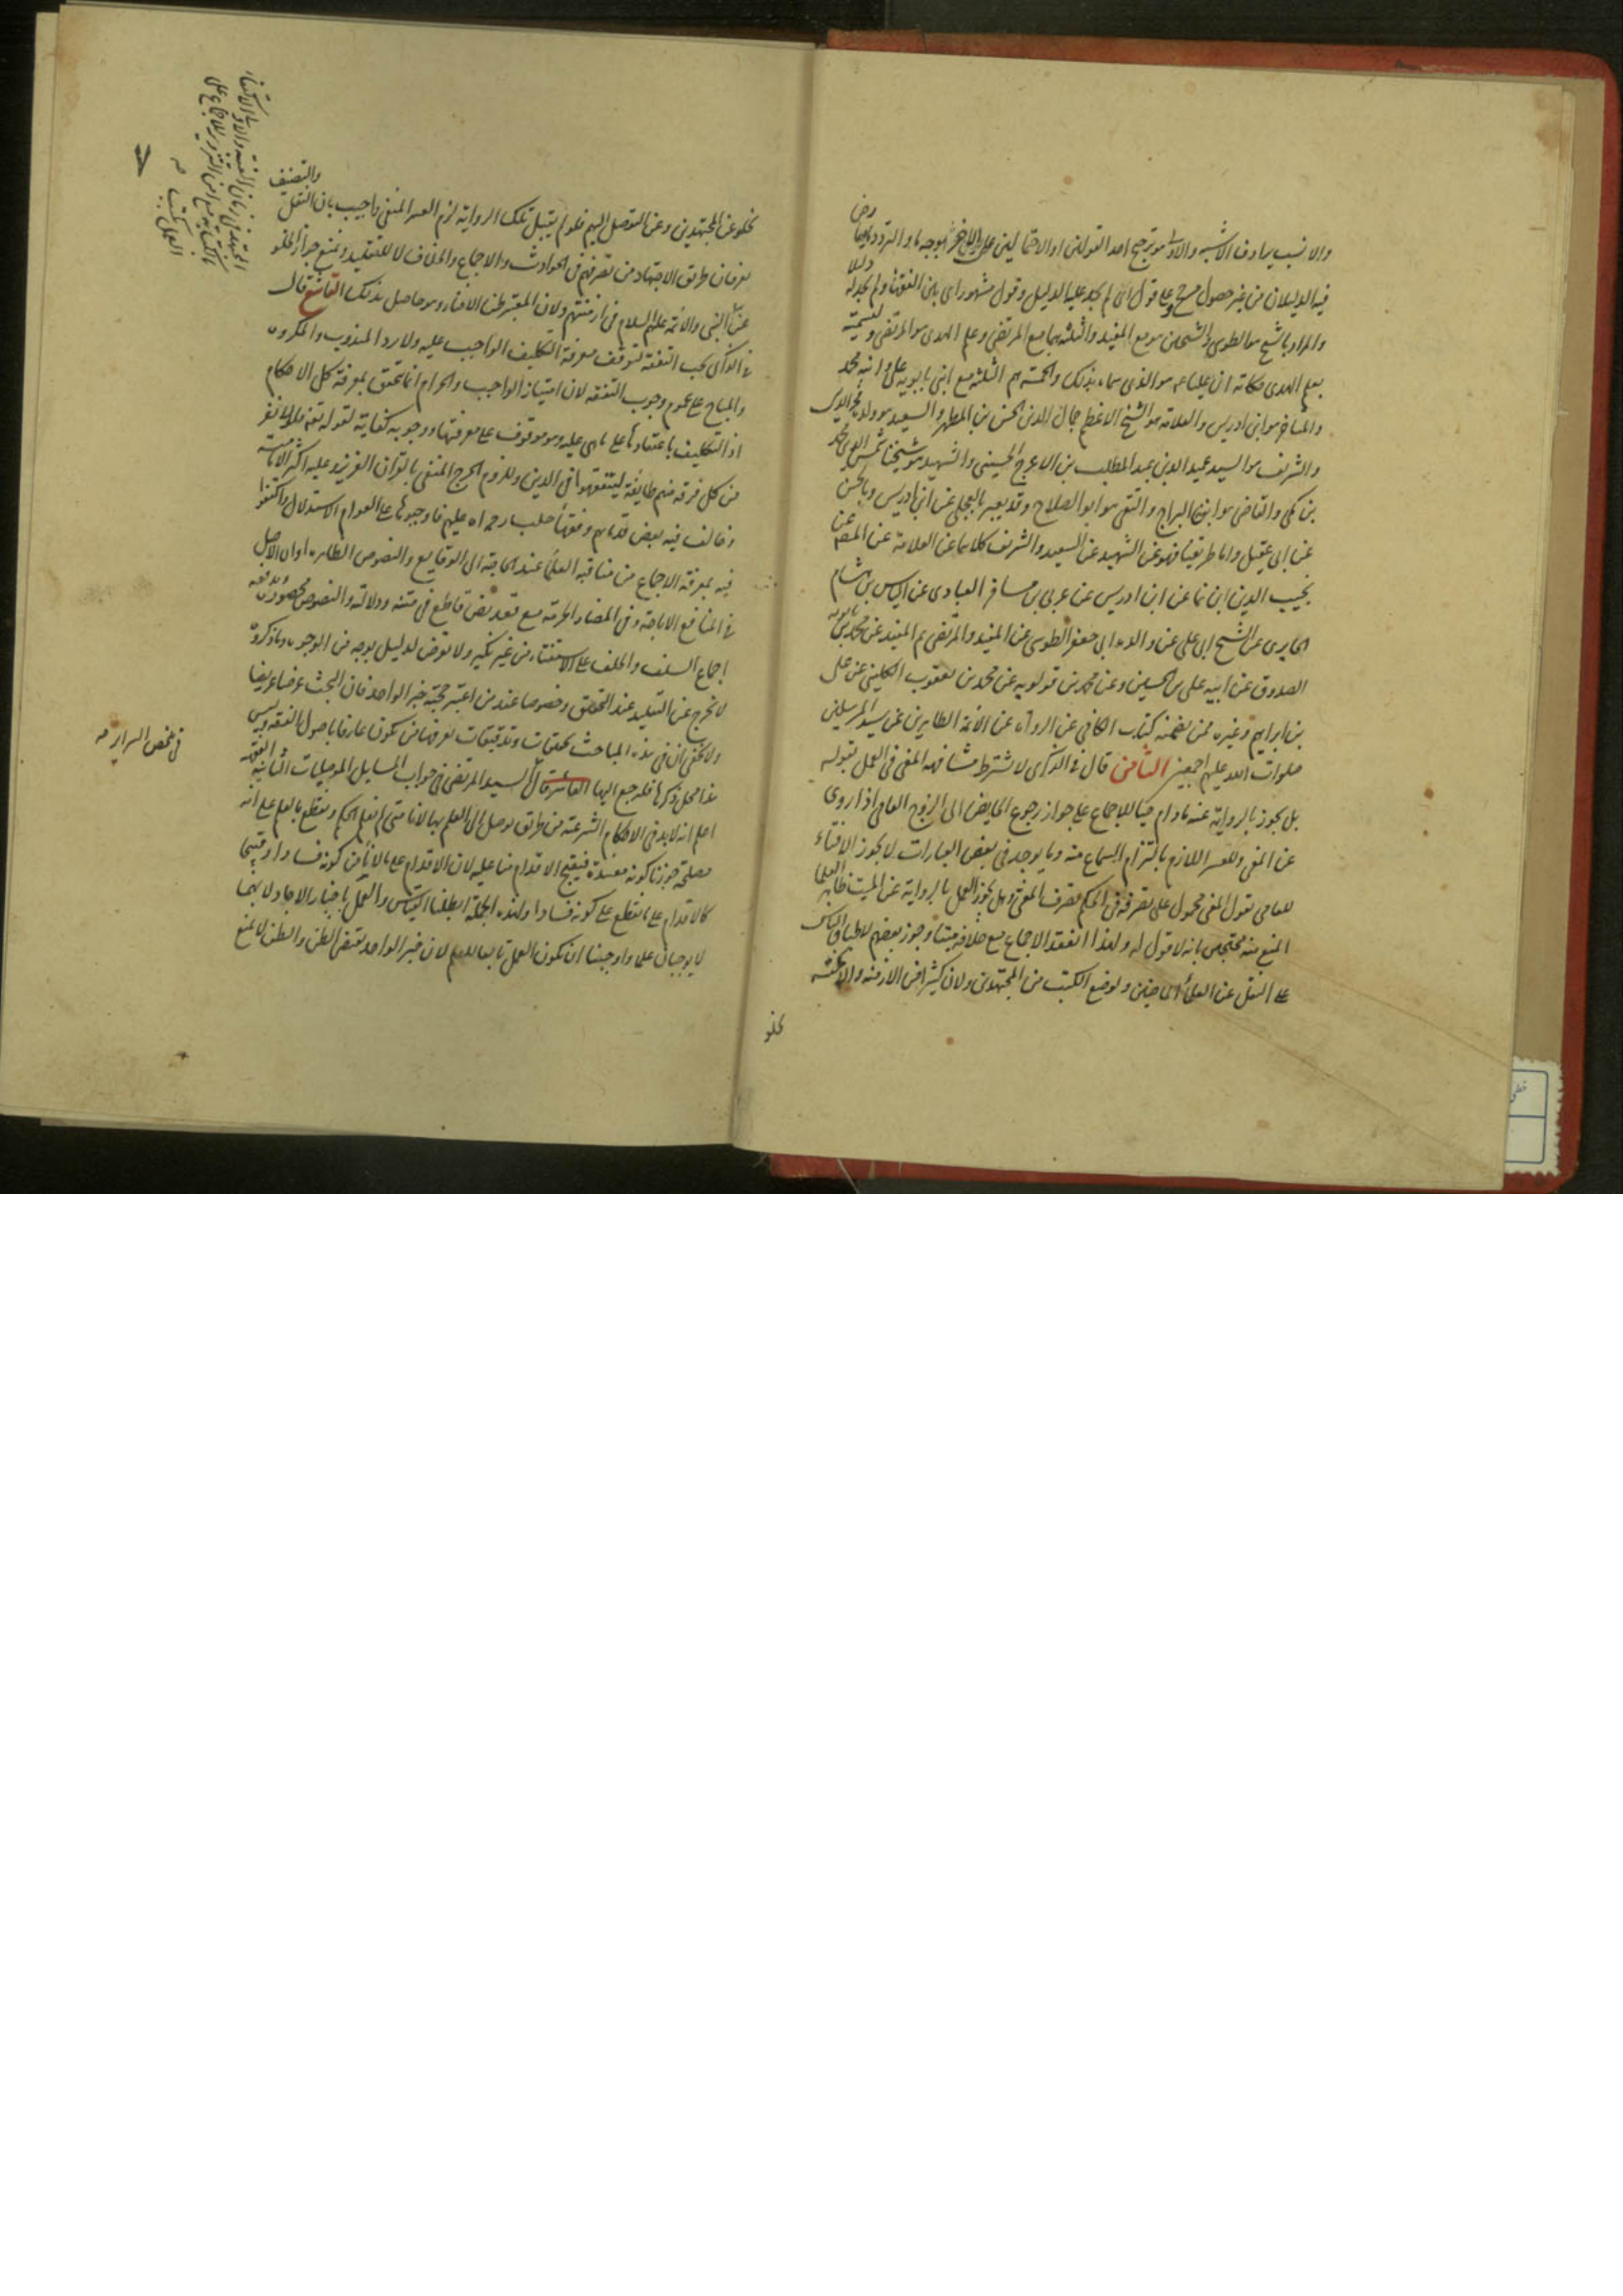 والانسب يرادف الاشبه والاولى هو ترجيح احد القولين او الاحتمالين على الاخر بوجه ما والتردد ما
فيه الدليلان من غير حصول مرجح وعلى قول اى لم نجد عليه الدليل وقول مشهور اى بين الفقهاء ولم نجد له
والمراد بالشيخ هو الطوسى والشيخين هو مع المفيد والثلثة هما مع المرتضى وعلم الهدى هو المرتضى
بعلم الهدى حكاية ان عليا عم هو الذى سماه بذلك والخمسة هم الثلثة مع ابنى بابويه على وابنه محمد
والمتاخر هو ابن ادريس والعلامة هو الشيخ الاعظم جمال الدين الحسن بن المطهر والسعيد هو ولده فخر الدين
والشريف هو السيد عميد الدين عبد المطلب بن الاعرج الحسينى والشهيد هو شيخنا شمس الدين محمد
بن مكى والقاضى هو ابن البراج والتقى هو ابو الصلاح وقد يعبر بالعجلى عن ابن ادريس وبالحسن
عن ابى عقيل واما طريقنا فهو عن الشهيد عن السعيد والشريف كلاهما عن العلامة عن المصنف عن
نجيب الدين ابن نما عن ابن ادريس عن عربى بن مسافر العبادى عن الياس بن هشام
الحايرى عن الشيخ ابى على عن والده ابى جعفر الطوسى عن المفيد والمرتضى ثم المفيد عن محمد بن بابويه
الصدوق عن ابيه على بن الحسين وعن محمد بن قولويه عن محمد بن يعقوب الكلينى عن على
بن ابراهيم وغيره ممن يضمنه كتاب الكافى عن الرواة عن الائمة الطاهرين عن سيد المرسلين
صلوات الله عليهم اجمعين الثامن قال فى الذكرى لا يشترط مشافهة المفتى فى العمل بقوله
بل يجوز بالرواية عنه ما دام حيا للاجماع على جواز رجوع الحايض الى الزوج العامى اذا روى
عن المفتى وللعسر اللازم بالتزام السماع منه وما يوجد فى بعض العبارات لا يجوز الافتاء
للعامى بقول المفتى محمول على تصرفه فى الحكم تصرف المفتى وهل يجوز العمل بالرواية عن الميت ظاهر العلما
المنع منه محتجين بانه لا قول له ولهذا انعقد الاجماع مع خلافه ميتا وجوز بعضهم لاطباق الناس
على النقل عن العلماء الماضين ولوضع الكتب من المجتهدين ولان كثيرا من الازمنة والامكنة
تخلو
٧
تخلو عن المجتهدين وعن التوصل اليهم فلو لم يقبل تلك الرواية لزم العسر المنفى واجيب بان النقل والتصنيف
يعرفان طريق الاجتهاد من تصرفهم فى الحوادث والاجماع والخلاف لا للتقليد ويمنع جواز الخلو
عن النبى والائمة عليهم السلام فى ازمنتهم ولان المعتبر ظن الافتاء وهو حاصل بذلك التاسع قال
فى الذكرى يجب التفقه لتوقف معرفة التكليف الواجب عليه ولا يرد المندوب والمكروه
والمباح على عموم وجوب التفقه لان امتياز الواجب والحرام انما يتحقق بمعرفة كل الاحكام
اذ التكليف باعتقادها على ما هى عليه وهو موقوف على معرفتها ووجوبه كفاية لقوله تعالى فلولا نفر
من كل فرقة منهم طايفة ليتفقهوا فى الدين وللزوم الحرج المنفى بالقران العزيز وعليه اكثر الامامية
وخالف فيه بعض قدمائهم وفقهاء حلب رحمه الله عليهم فاوجبوها على العوام الاستدلال واكتفوا
فيه بمعرفة الاجماع من مناقبة العلماء عند الحاجة الى الوقايع والنصوص الظاهرة او ان الاصل
فى المنافع الاباحة وفى المضار الحرمة مع فقد نص قاطع فى متنه ودلالته والنصوص محصورة ويدفعه
اجماع السلف والخلف على الاستفتاء من غير نكير ولا تعرض لدليل بوجه من الوجوه وما ذكروه
لا يخرج عن التقليد عند التحقيق وخصوصا عند من اعتبر حجية خبر الواحد فان البحث عنه عريضا
ولا يخفى ان فى هذه المباحث تحقيقات وتدقيقات يعرفها من يكون عارفا باصول الفقه وليس
هذا محل ذكرها فليرجع اليها العاشر قال السيد المرتضى فى جواب المسايل الموصليات الثانية الفقهية
اعلم انه لا بد فى الاحكام الشرعية من طريق توصل الى العلم بها لانا متى لم نعلم الحكم ونقطع بالعلم على انه
مصلحة جوزنا كونه مفسدة فيقبح الاقدام منا عليه لان الاقدام على ما لا نأمن كونه فسادا وقبيحا
كالاقدام على ما نقطع على كونه فسادا ولهذه الجملة ابطلنا القياس والعمل باخبار الاحاد لانهما
لا يوجبان علما واوجبنا ان يكون العمل تابعا للعلم لان خبر الواحد يقتضى الظن والظن لا يمنع